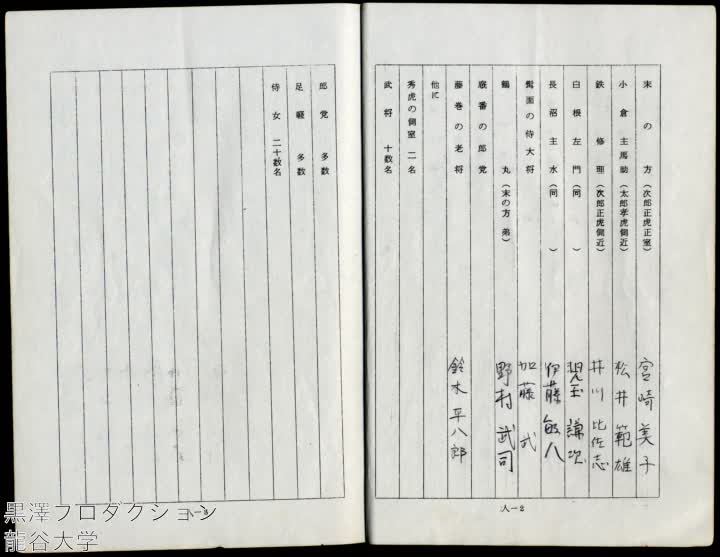 末の方（次郎正虎正室） 宮崎美子
小倉主馬助（太郎孝虎側近） 松井範雄
鉄修理（次郎正虎側近） 井川比佐志
白根左門（同） 児玉謙次
長沼主水（同） 伊藤敏八
髭面の侍大将 加藤武
鶴丸（末の方 弟） 野村武司
厩番の郎党
藤巻の老将 鈴木平八郎
他に
秀虎の側室 二名
武将 十数名
人－2
郎党 多数
足軽 多数
侍女 二十数名
人－3
黒澤プロダクション
龍谷大学